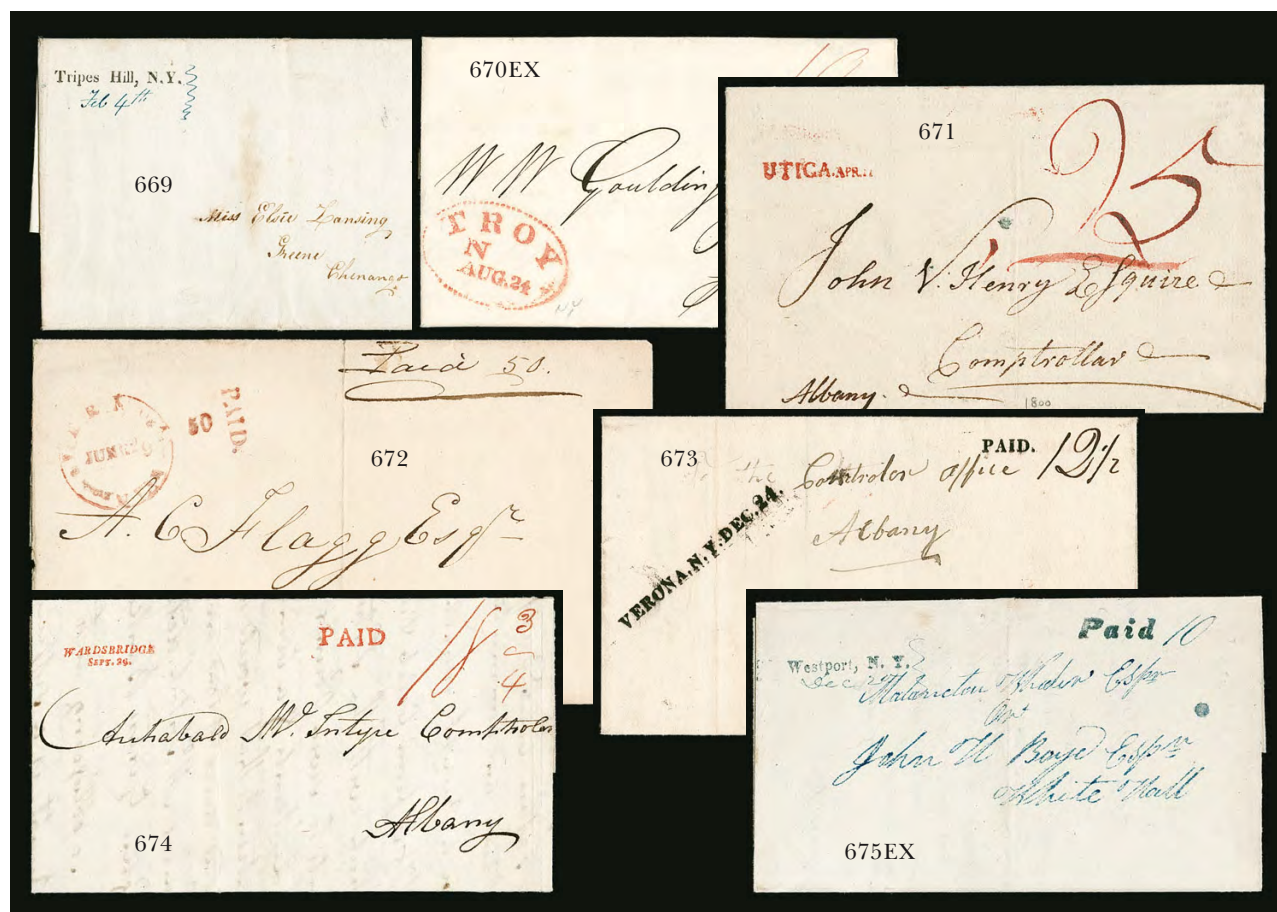 Tripes Hill, N.Y.
Feb 4th
669
Miss Elsie Lansing
Greene
Chenango
670EX
W W Goulding
TROY
N
AUG.24
NY
671
UTICA.APR.
25
John V. Henry Esquire
Comptrollar
Albany.
1800
Paid 50.
PAID.
50
JUN
672
A. C Flagg Esqr
673
PAID.
the Comtroler office 12 1/2
Albany
VERONA.N.Y.DEC.24.
WARDSBRIDGE
SEPT. 29.
PAID
18 3/4
Archabald Mc. Intyre Comptroler
Albany
674
Paid 10
Westport, N. Y.
Dec
Wilder Esqr
Or
John H Boyd Esqr
White Hall
675EX